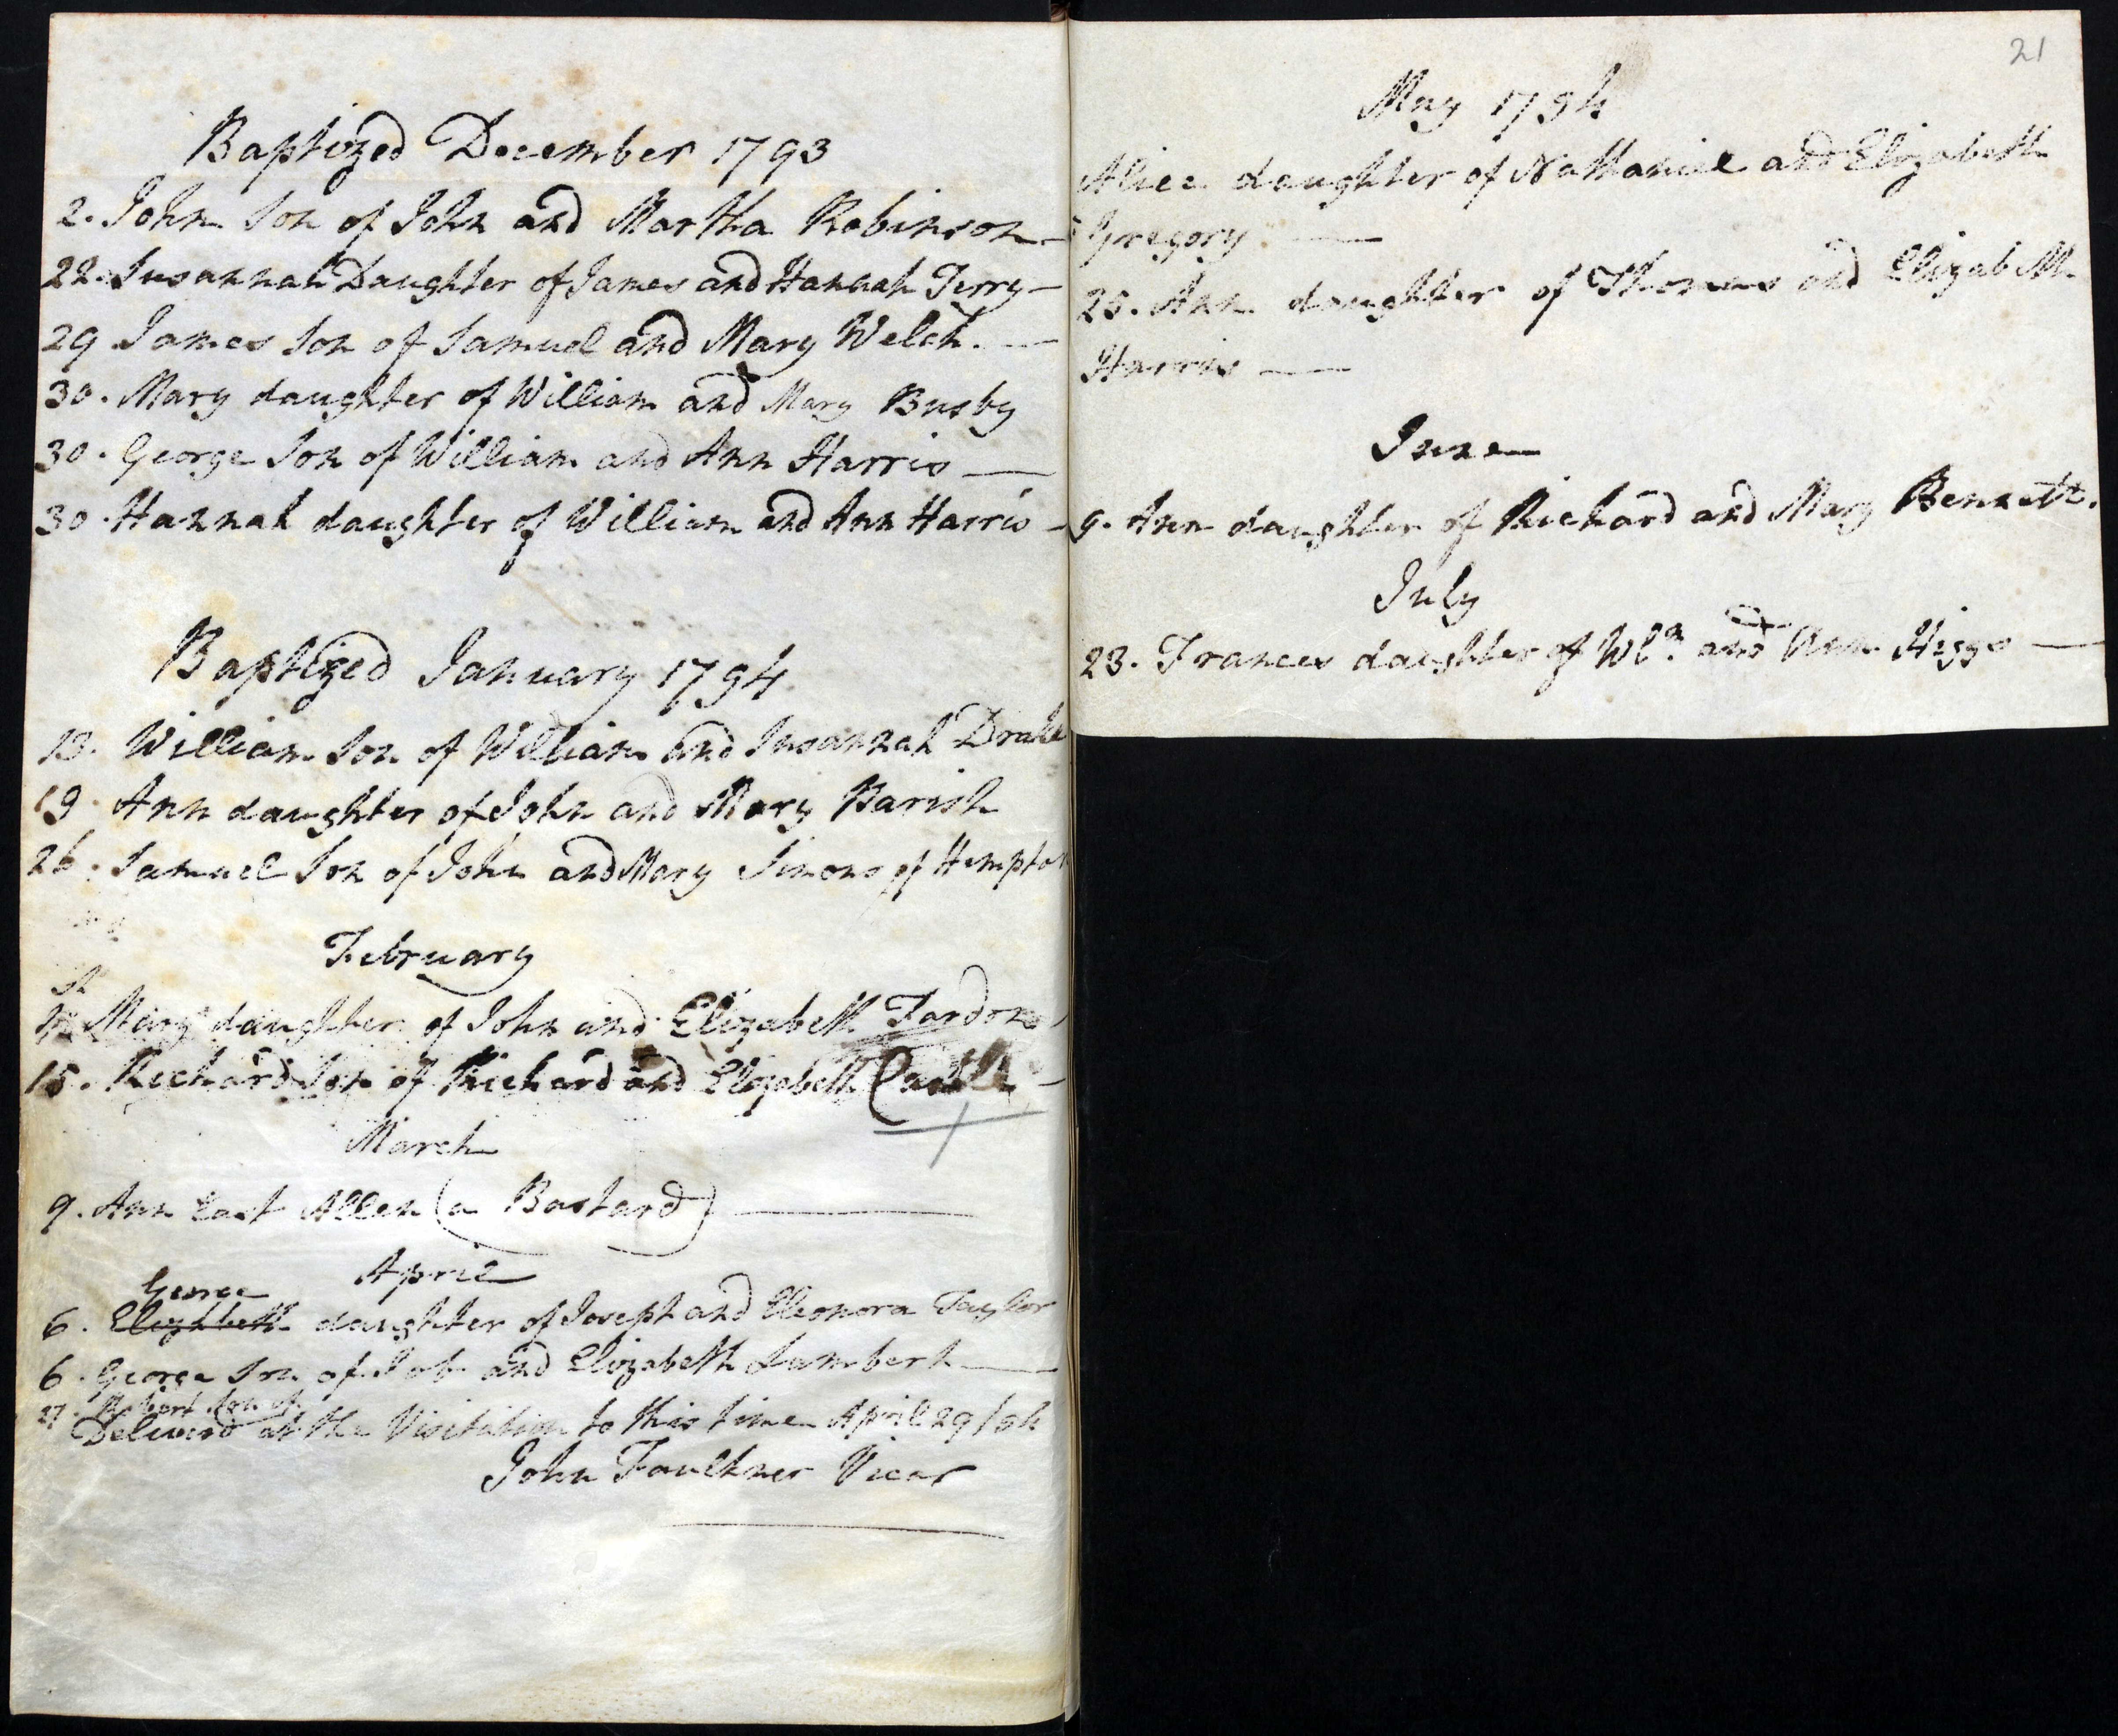 Baptized December 1793
2. John Son of John and Martha Robinson
22. Susannah Daughter of James and Hannah Terry
29 James Son of Samuel and Mary Welch.
30. Mary daughter of William and Mary Busby
30. George Son of William and Ann Harris
30. Hannah daughter of William and Ann Harris
Baptized January 1794
13. William Son of William and Susannah Drake
19. Ann daughter of John and Mary Parish
26. Samuel Son of John and Mary Simons of Hempton
February
Mary daughter of John and Elizabeth Tardon
15. Richard Son of Richard and Elizabeth Castle
March
9. Ann East Allen (a Bastard)
April
George
6. Elizabeth daughter of Joseph and Eleonora Taylor
6. George Son of Job and Elizabeth Lambert
27. Robert Son of
Deliverd at the Visitation to this time April 29/94
John Faulkner Vicar
21
May 1794
Alice daughter of Nathaniel and Elizabeth
Gregory
25. Ann daughter of Thomas and Elizabeth
Harris
June
9. Ann daughter of Richard and Mary Bennett.
July
23. Frances daughter of Wm and Ann Higgs